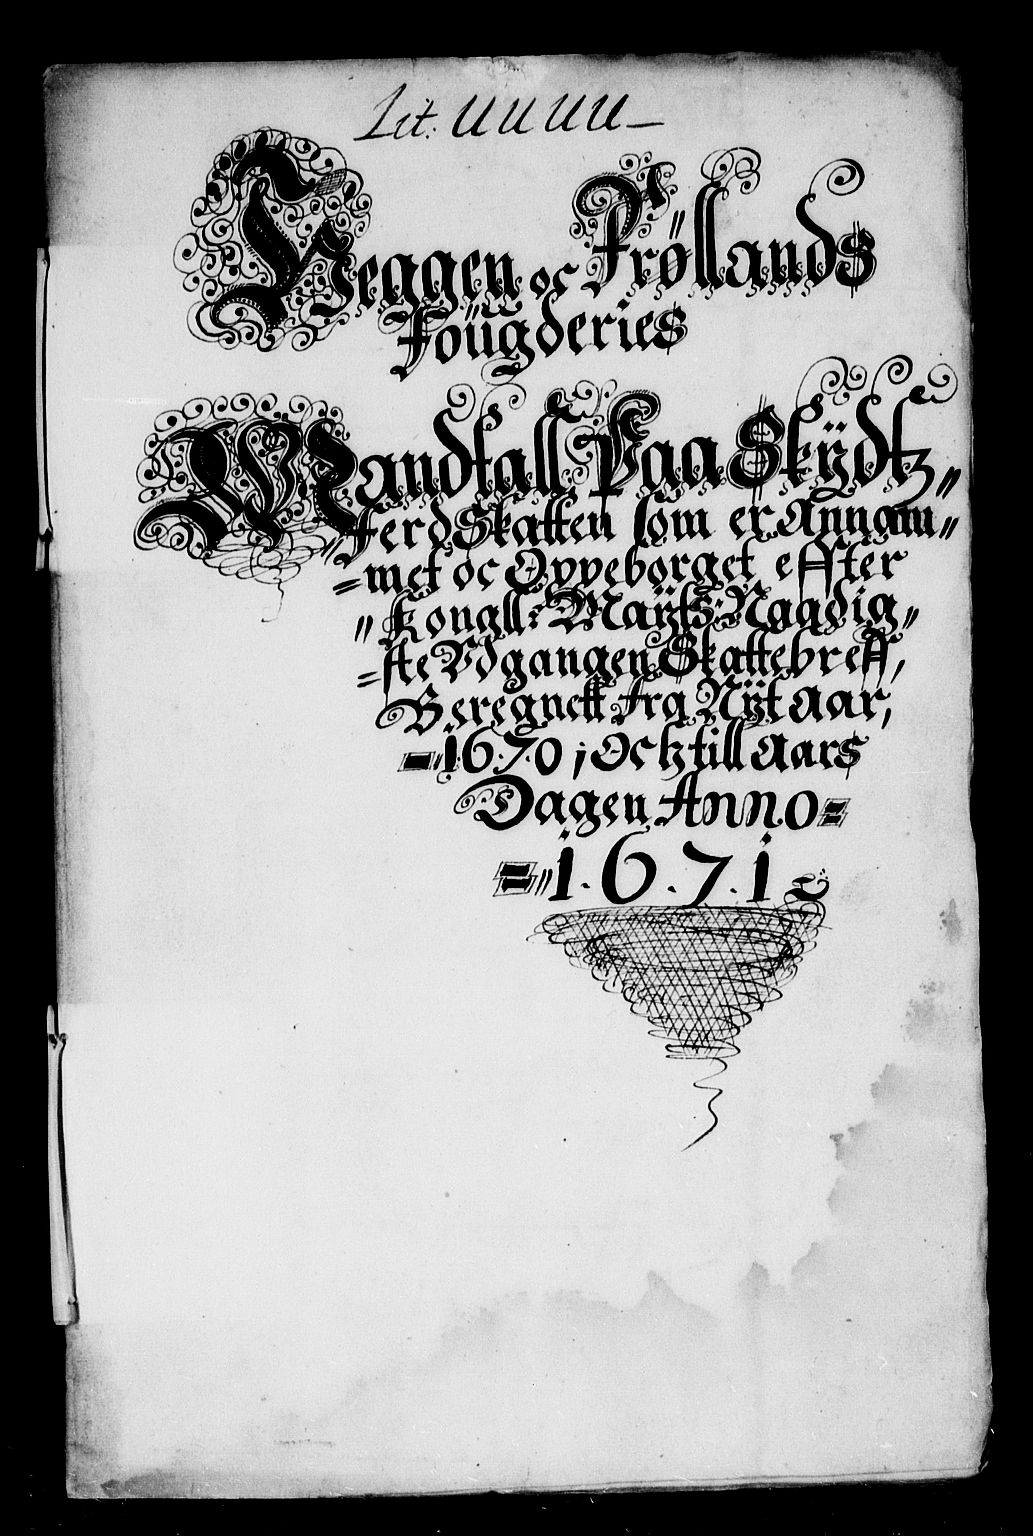 Lit: UUUU
Heggen oc Frøllands
Foügderies
Mandtall Paa Skÿdtz
ferd Skatten som er Annam
met oc Oppeborget effter
Kongll: Maÿtz: Naadig
ste Vdgangen Skattebreff,
Beregnett fra Nÿt Aar,
1670; Och till Aars
Dagen Anno
1.6.7.1